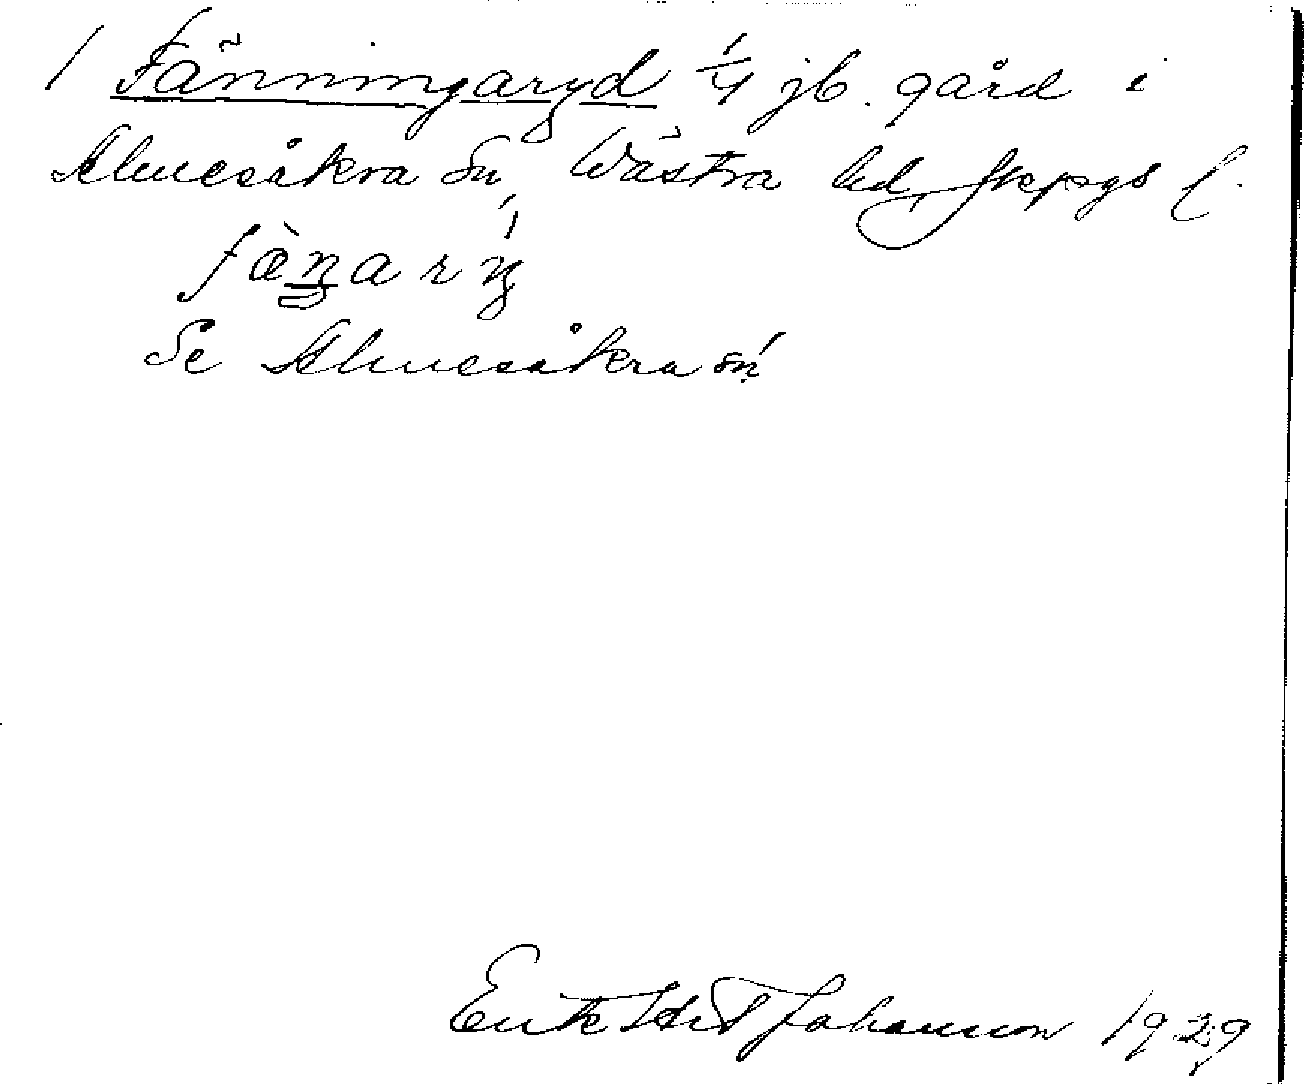 1 Fänningaryd 1/4 jb. gård i
Almesåkra Sn, Västra hd, Jkpgs l.
Se Almesåkra sn!
Erik Johansson 1929